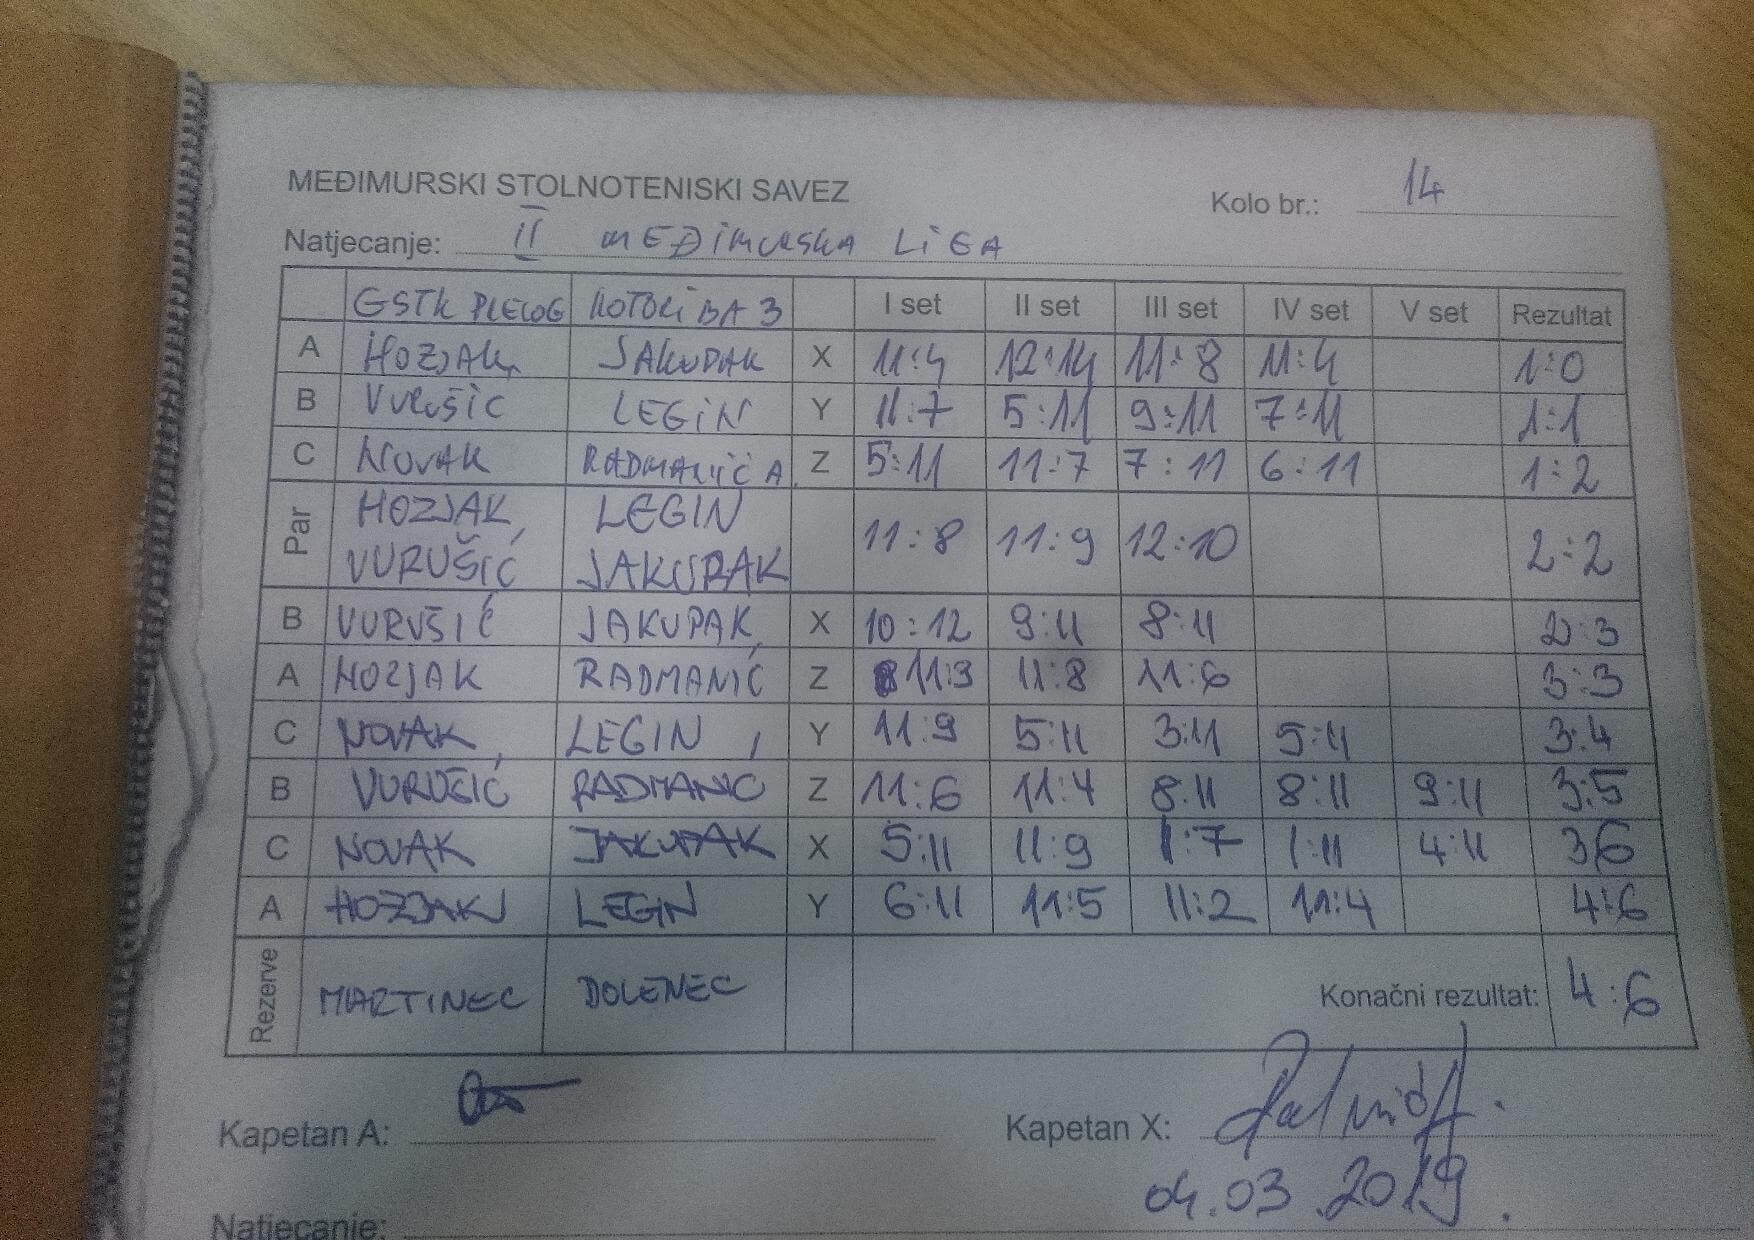 MEĐIMURSKI STOLNOTENISKI SAVEZ
Kolo br.: 14
Natjecanje: II MEĐIMURSKA LIGA
GSTK PRELOG KOTORIBA 3 I set II set III set IV set V set Rezultat
A HOZJAK JAKUPAK X 11:4 12:14 11:8 11:4 1:0
B VURUŠIĆ LEGIN Y 11:7 5:11 9:11 7:11 1:1
C NOVAK RADMANIĆ A. Z 5:11 11:7 7:11 6:11 1:2
Par HOZJAK, LEGIN 11:8 11:9 12:10 2:2
VURUŠIĆ JAKUPAK
B VURUŠIĆ JAKUPAK X 10:12 9:11 8:11 2:3
A HOZJAK RADMANIĆ Z 11:3 11:8 11:6 3:3
C NOVAK LEGIN Y 11:9 5:11 3:11 5:11 3:4
B VURUŠIĆ RADMANIĆ Z 11:6 11:4 8:11 8:11 9:11 3:5
C NOVAK JAKUPAK X 5:11 11:9 :7 1:11 4:11 3:6
A HOZJAK LEGIN Y 6:11 11:5 11:2 11:4 4:6
Rezerve MARTINEC DOLENEC Konačni rezultat: 4:6
Kapetan A: Kapetan X:
04.03.2019.
Natjecanje: